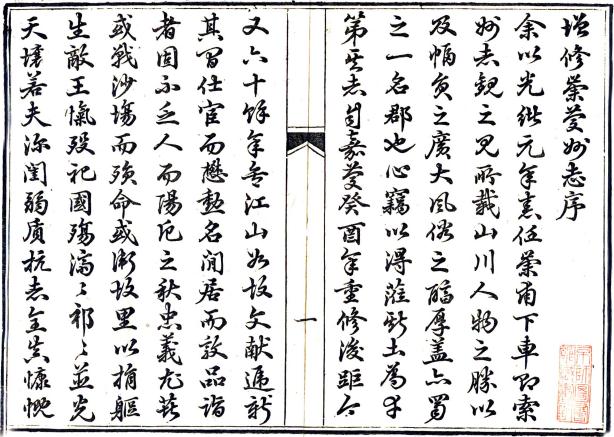 增修崇慶州志序
余以光緒元年春任崇甫下車即索
州志觀之見所載山川人物之勝以
及幅員之廣大風俗之醕厚蓋亦蜀
之一名郡也心竊以得蒞斯土為幸
第其志自嘉慶癸酉年重修後距今
又六十餘年矣江山如故文献遞新
其間仕宦而懋勳名閒居而敦品詣
者固不乏人而陽厄之秋忠義尤甚
或戰沙場而殞命或衛故里以捐軀
生敵王愾歿祀國殤濟濟祁祁並光
天壤若夫深閨弱質抗志全貞慷慨
一